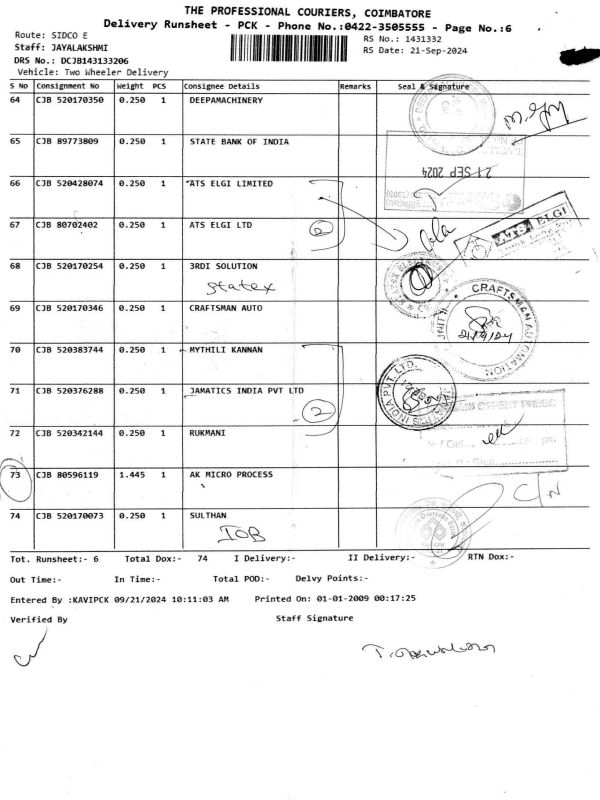 THE PROFESSIONAL COURIERS, COIMBATORE
Delivery Runsheet - PCK - Phone No.:0422-3505555 - Page No.:6
Route: SIDCO E
RS No.: 1431332
Staff: JAYALAKSHMI
RS Date: 21-Sep-2024
DRS No.: DCJB143133206
Vehicle: Two Wheeler Delivery
S No Consignment No Weight PCS Consignee Details Remarks Seal & Signature
64 CJB 520170350 0.250 1 DEEPAMACHINERY
65 CJB 89773809 0.250 1 STATE BANK OF INDIA
21 SEP 2024
66 CJB 520428074 0.250 1 ATS ELGI LIMITED
67 CJB 80702402 0.250 1 ATS ELGI LTD
2
ATS ELGI
68 CJB 520170254 0.250 1 3RDI SOLUTION
Statex
69 CJB 520170346 0.250 1 CRAFTSMAN AUTO
CRAFTSMAN AUTOMATION
21/9/24
70 CJB 520383744 0.250 1 MYTHILI KANNAN
71 CJB 520376288 0.250 1 JAMATICS INDIA PVT LTD
2
JAMATICS INDIA PVT. LTD.
OFFSET PRESS
72 CJB 520342144 0.250 1 RUKMANI
73 CJB 80596119 1.445 1 AK MICRO PROCESS
C/N
74 CJB 520170073 0.250 1 SULTHAN
IOB
Tot. Runsheet:- 6 Total Dox:- 74 I Delivery:- II Delivery:- RTN Dox:-
Out Time:- In Time:- Total POD:- Delvy Points:-
Entered By :KAVIPCK 09/21/2024 10:11:03 AM Printed On: 01-01-2009 00:17:25
Verified By Staff Signature